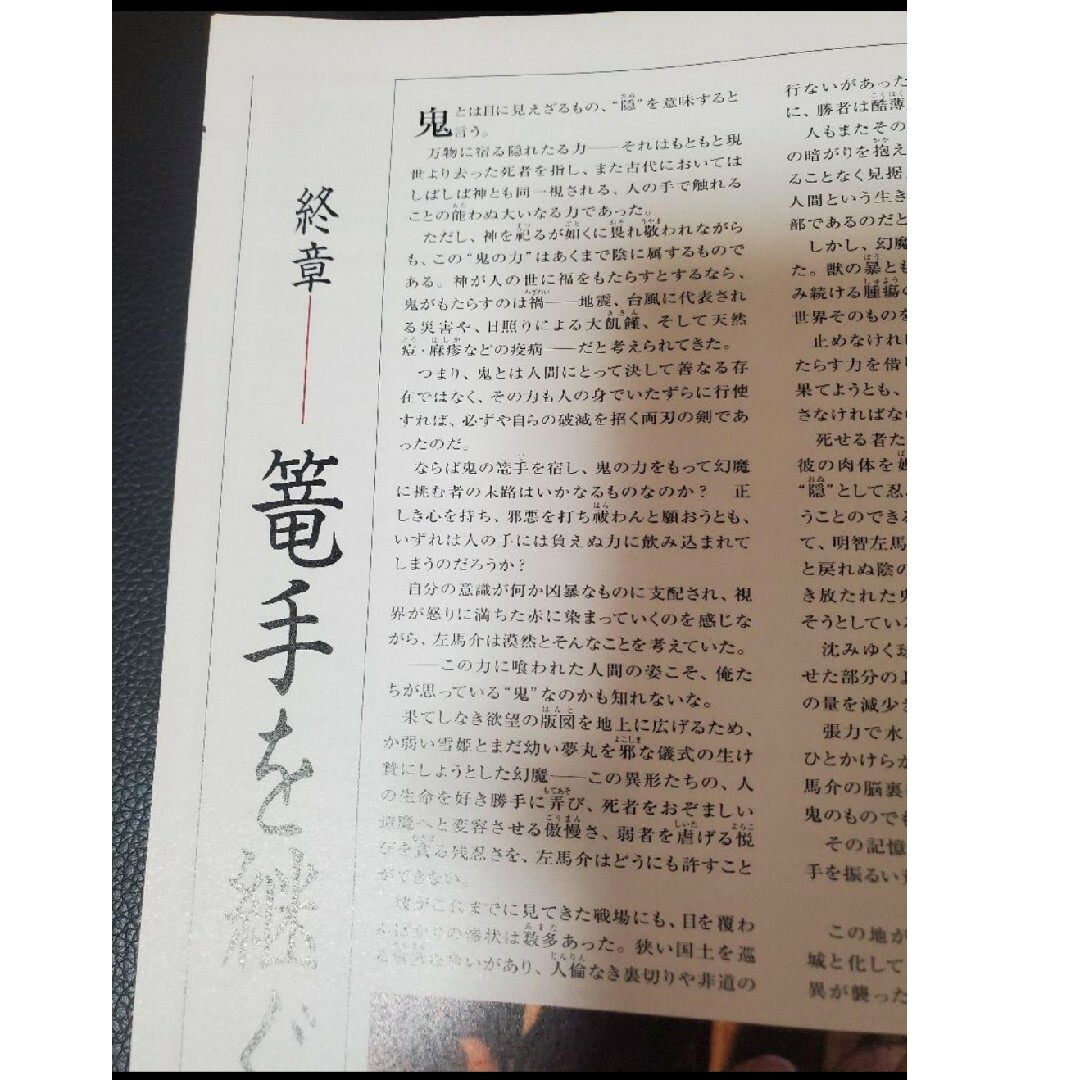 終章
篭手を継ぐ
鬼とは目に見えざるもの、“隠”を意味すると
言う。
万物に宿る隠れたる力――それはもともと現
世より去った死者を指し、また古代においては
しばしば神とも同一視される、人の手で触れる
ことの能わぬ大いなる力であった。
ただし、神を祀るが如くに畏れ敬われながら
も、この“鬼の力”はあくまで陰に属するもので
ある。神が人の世に福をもたらすとするなら、
鬼がもたらすのは禍――地震、台風に代表され
る災害や、日照りによる大飢饉、そして天然
痘・麻疹などの疫病――だと考えられてきた。
つまり、鬼とは人間にとって決して善なる存
在ではなく、その力も人の身でいたずらに行使
すれば、必ずや自らの破滅を招く両刃の剣であ
ったのだ。
ならば鬼の篭手を宿し、鬼の力をもって幻魔
に挑む者の末路はいかなるものなのか？　正
しき心を持ち、邪悪を打ち祓わんと願おうとも、
いずれは人の手には負えぬ力に飲み込まれて
しまうのだろうか？
自分の意識が何か凶暴なものに支配され、視
界が怒りに満ちた赤に染まっていくのを感じな
がら、左馬介は漠然とそんなことを考えていた。
――この力に喰われた人間の姿こそ、俺た
ちが思っている“鬼”なのかも知れないな。
果てしなき欲望の版図を地上に広げるため、
か弱い雪姫とまだ幼い夢丸を邪な儀式の生け
贄にしようとした幻魔――この異形たちの、人
の生命を好き勝手に弄び、死者をおぞましい
造魔へと変容させる傲慢さ、弱者を虐げる悦
びを貪る残忍さを、左馬介はどうにも許すこと
ができない。
彼がこれまでに見てきた戦場にも、目を覆わ
んばかりの惨状は数多あった。狭い国土を巡
いがあり、人倫なき裏切りや非道の
行ないがあった
に、勝者は酷薄
人もまたその
の暗がりを抱え
ることなく見据
人間という生き
部であるのだと
しかし、幻魔
た。獣の暴とも
み続ける腫瘍の
世界そのものを
止めなければ
たらす力を借り
果てようとも、
さなければなら
死せる者た
彼の肉体を
“隠”として忍
うことのできる
て、明智左馬
と戻れぬ陰の
き放たれた鬼
そうとしてい
沈みゆく
せた部分の
の量を減少
張力で水
ひとかけらか
馬介の脳裏
鬼のものでも
その記憶
手を振るい
この地が
城と化して
異が襲った